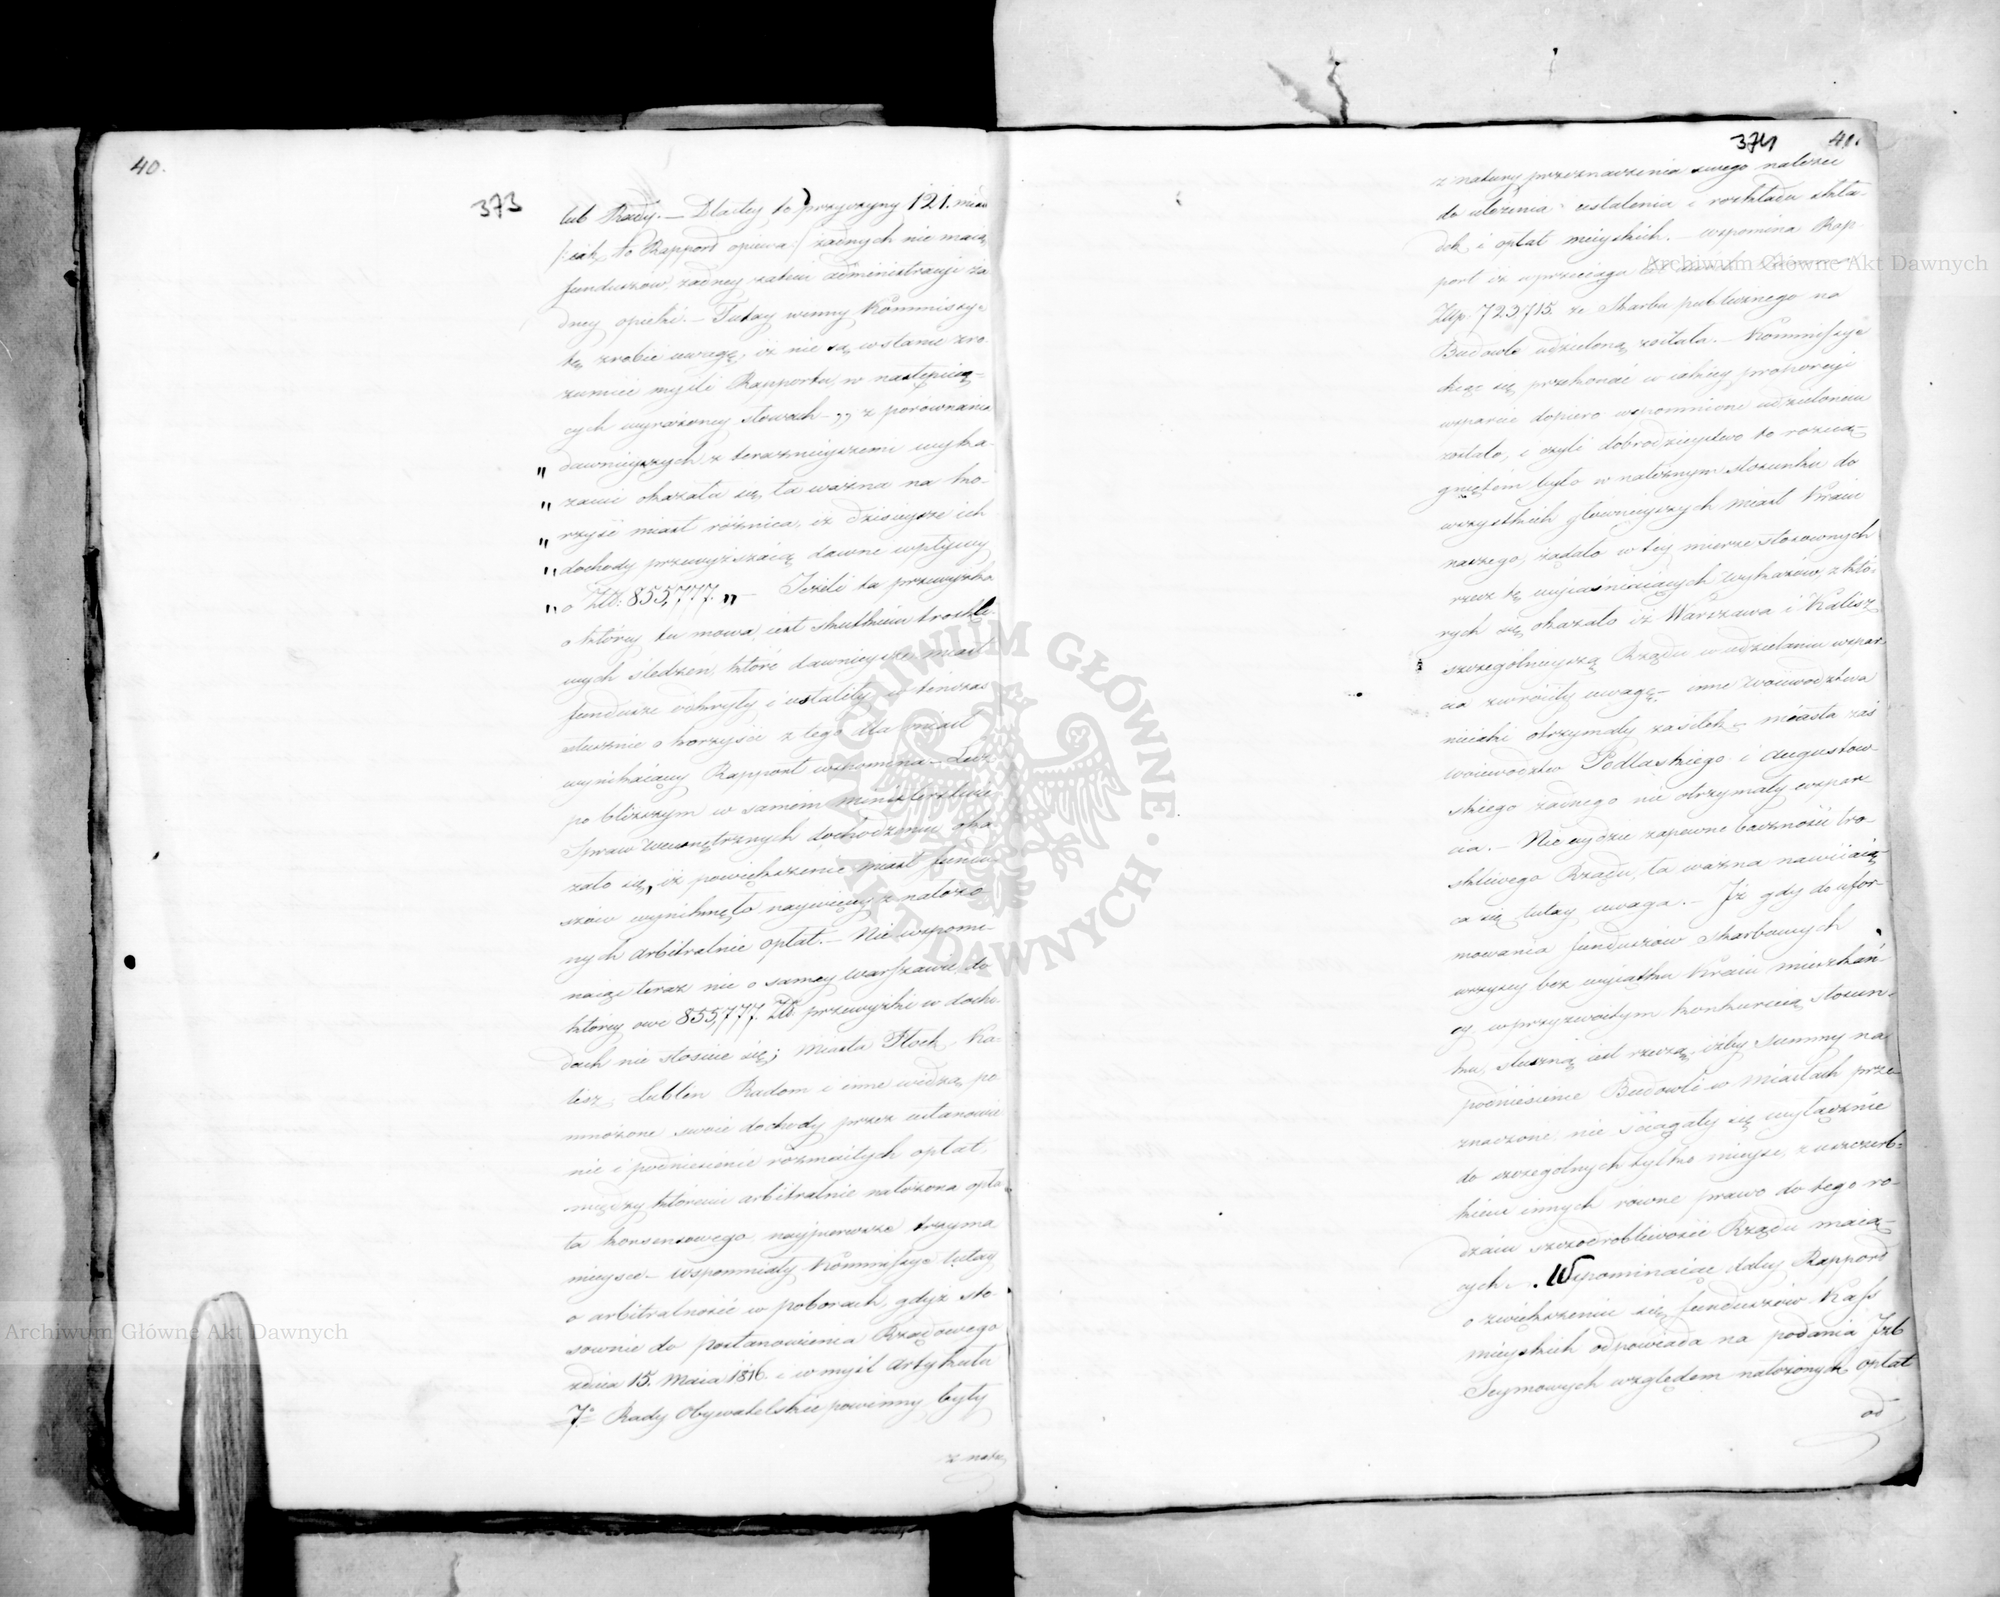 40.
373
lub Rady. — Dla tey to przyczyny 121. miast
/:iak to Rapport opiewa:/ żadnych nie maią
funduszow, żadney zatem administracyi ża
dney opieki. — Tutay winny Kommissye
tę zrobić uwagę, iż nie są w stanie zro
zumieć myśli Rapportu w następuią-
cych wyrażoney słowach — „ z porównania
„ dawnieyszych z teraznieyszemi wyka-
„ zami okazała się ta ważna na ko-
„ rzyść miast różnica, iż dzisieysze ich
„ dochody przewyższaią dawne wpływy
„ o Złt: 855,777. „ — Jeżeli ta przewyżka
o którey tu mowa, iest skutkiem troskli-
wych śledzeń, które dawnieysze miast
fundusze odkryły i ustaliły, w tenczas
słusznie o korzyści z tego dla miast
wynikaiącey Rapport wspomina — Lecz
po bliższym w samem ministerstwie
Spraw Wewnętrznych dochodzeniu oka
zało się, iż powiększenie miast fundu-
szów wyniknęło naywięcey z nałożo-
nych arbitralnie opłat. — Nie wspomi-
naiąc teraz nic o samey Warszawie, do
którey owe 855,777. Zł. przewyżki w docho
dach nie stosuie się; miasta Płock, Ka-
lisz, Lublin Radom i inne widzą po
mnożone swoie dochody przez ustanowie
nie i podniesienie rozmaitych opłat,
między któremi arbitralnie nałożona opła
ta konsensowego naypierwsze trzyma
mieysce — wspomniały Kommissye tutay
o arbitralności w poborach, gdyż sto-
sownie do postanowienia Rządowego
z dnia 15. Maia 1816. i w myśl Artykułu
7º Rady Obywatelskie powinny były
z natu
374 41.
z natury przeznaczenia swego należeć
do ułożenia ustalenia i rozkładu skła-
dek i opłat mieyskich. — wspomina Rap-
port iż w przeciągu
Złp. 723,715. ze Skarbu publicznego na
Budowle udzieloną została. — Kommissye
chcąc się przekonać w iakiey proporcyi
wsparcie dopiero wspomnione udzielonem
zostało, i czyli dobrodzieystwo to rozcią-
gniętem było w należnym stosunku do
wszystkich główneyszych miast Kraiu
naszego, żądało w tey mierze stosownych
rzecz tę wyiaśniaiących wykazów, z któ-
rych się okazało iż Warszawa i Kalisz
szczególnieyszą Rządu w udzielaniu wspar-
cia zwróciły uwagę — inne Woiewodztwa
nieiaki otrzymały zasiłek — miasta zaś
woiewodztw Podlaskiego i Augustow-
skiego żadnego nie otrzymały wspar-
cia. — Nie uydzie zapewne baczności tro-
skliwego Rządu, ta ważna nawiiaią-
ca się tutay uwaga. — Iż gdy do ufor-
mowania funduszów Skarbowych
wszyscy bez wyiątku Kraiu mieszkań-
cy w przyzwoitym konkuruią stosun-
ku, słuszną iest rzeczą, iżby summy na
podniesienie Budowli w Miastach prze-
znaczone, nie ściągały się wyłącznie
do szczególnych tylko mieysc, z uszczerb-
kiem innych równe prawo do tego ro-
dzaiu szczodrobliwości Rządu maią-
cych. — Wspominaiąc daley Rapport
o zwiększeniu się funduszów Kass
mieyskich odpowiada na podania Izb
Seymowych względem nałożonych opłat
od
Archiwum Główne Akt Dawnych
Archiwum Główne Akt Dawnych
ARCHIWUM GŁÓWNE AKT DAWNYCH